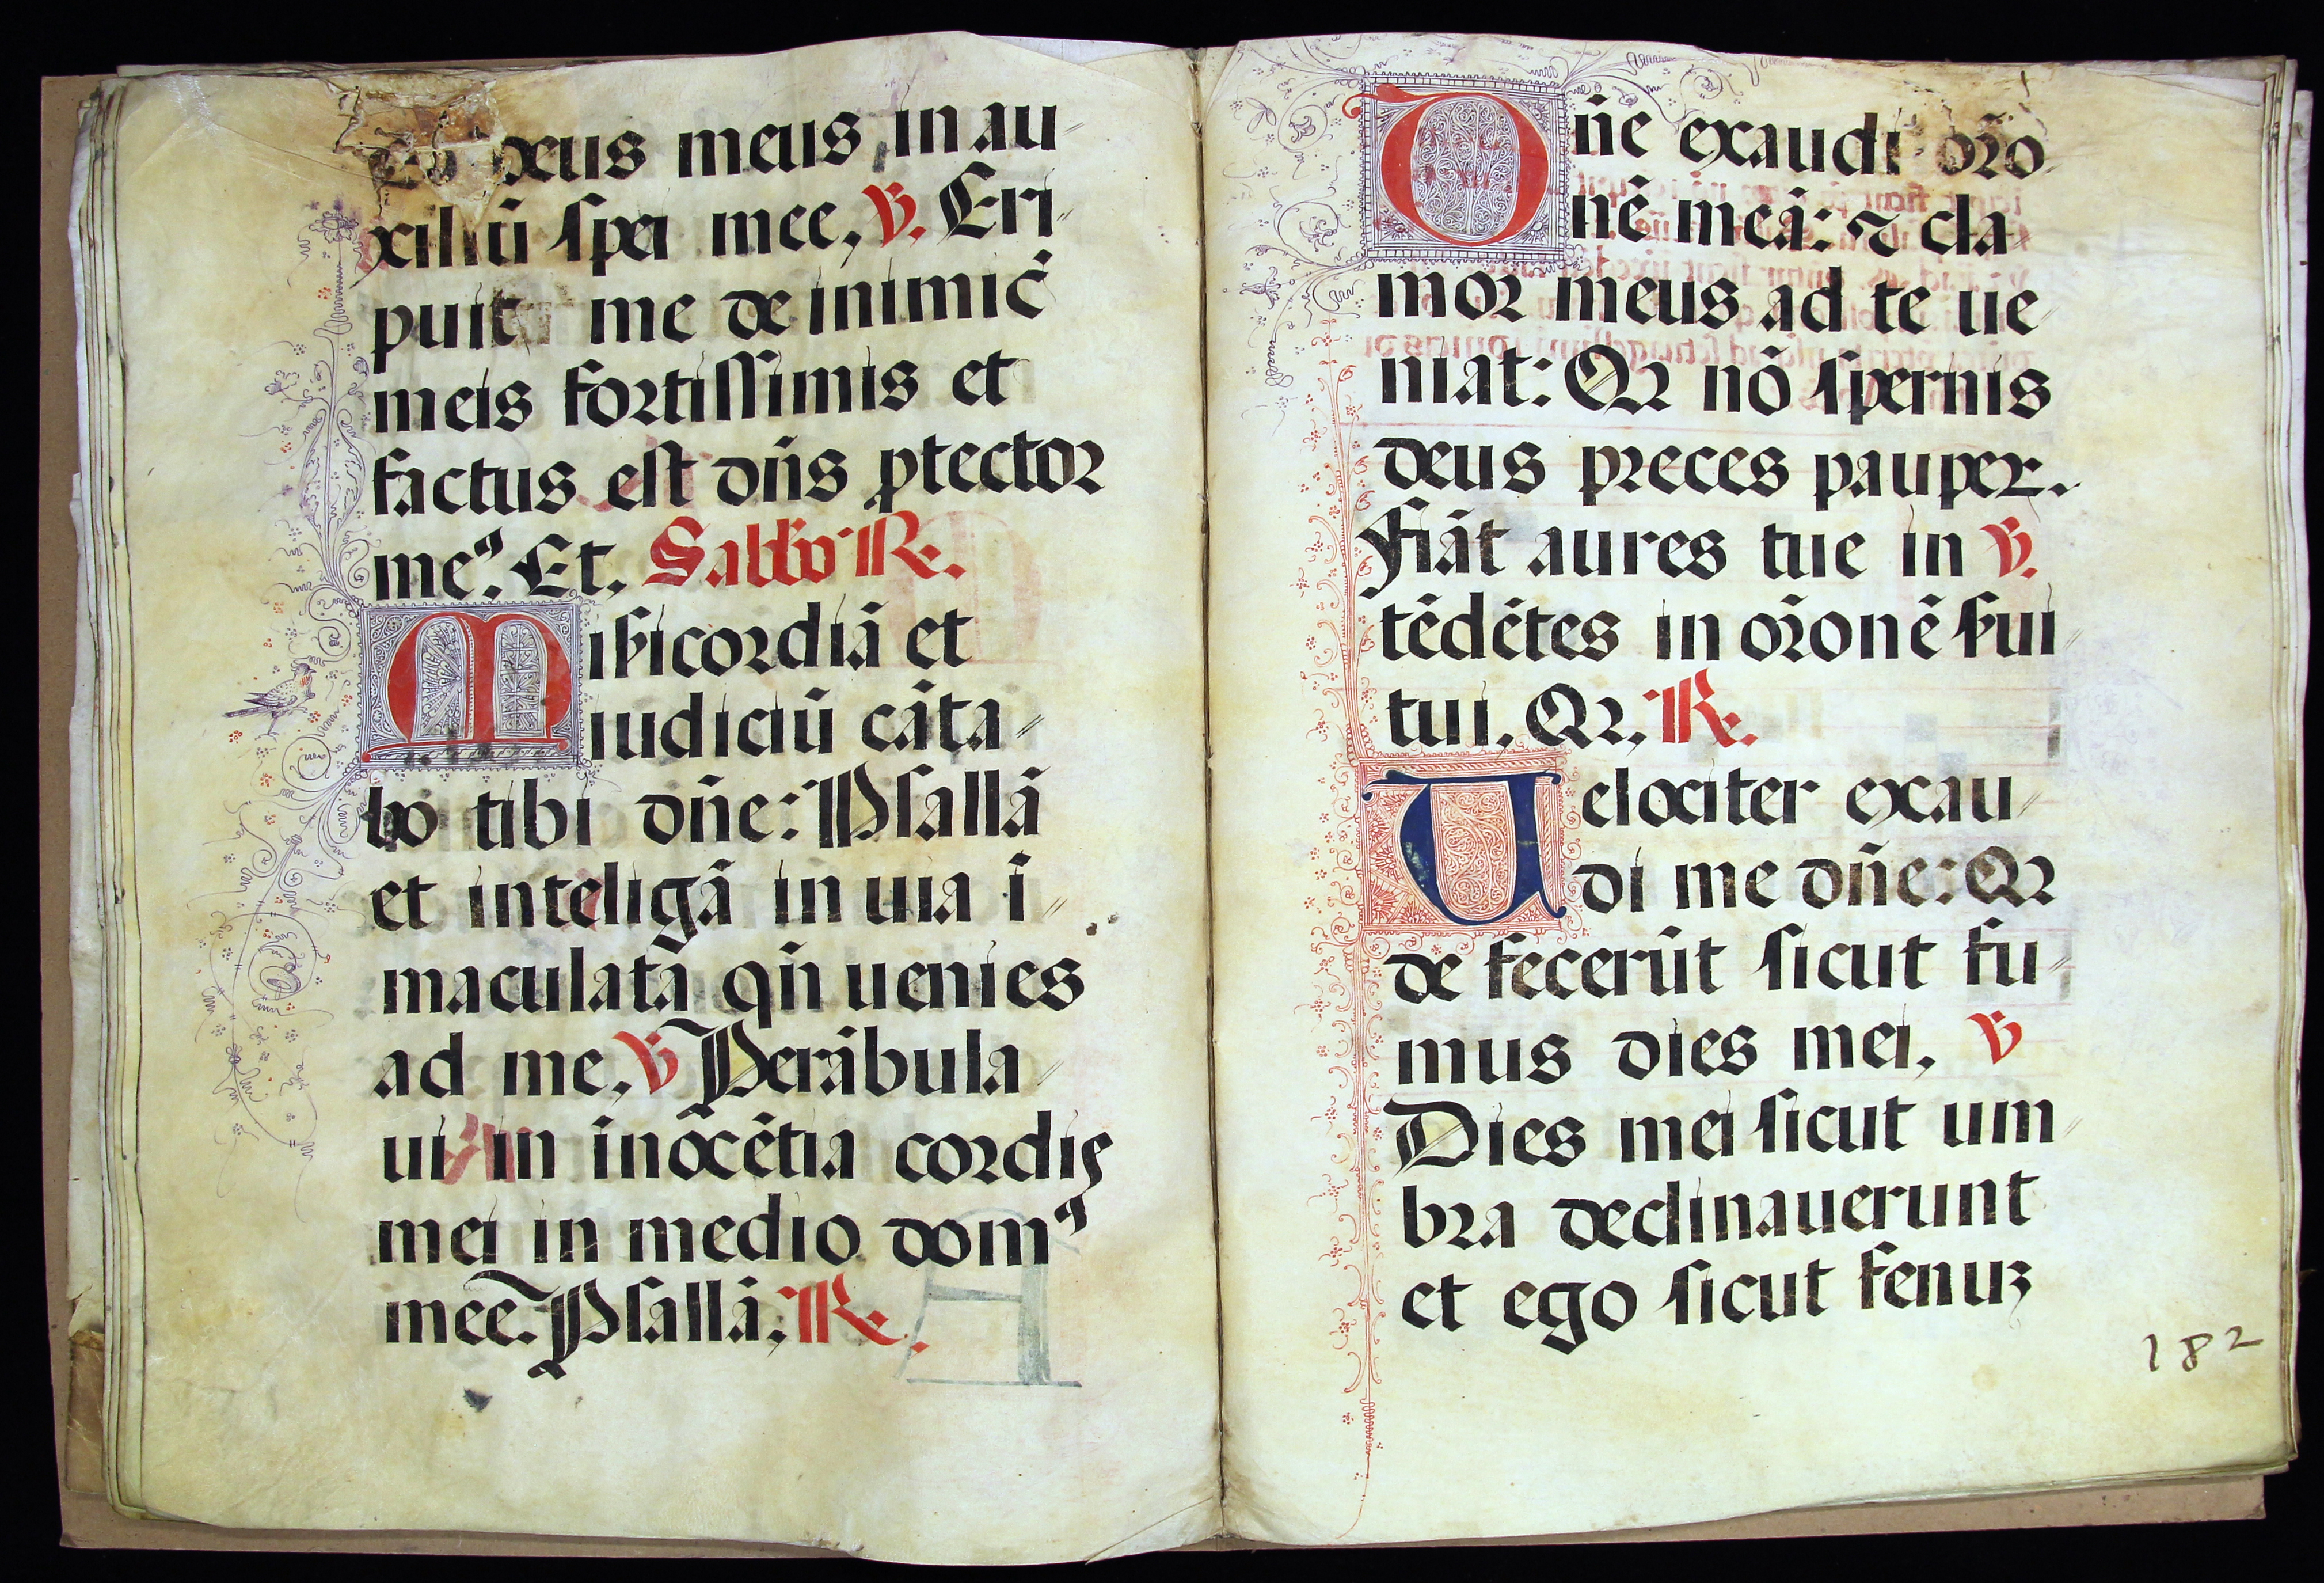 deus meus in au
xiliū spei mee, ℣. Eri
puit me de inimic̄
meis fortissimis et
factus est dn̄s ꝓtector
meꝰ. Et. Sabbō ℟.
Misẜicordiā et
iudiciū cāta
bo tibi dn̄e: Psallā
et inteligā in uia ī
maculata qn̄ uenies
ad me, ℣ Perābula
ui in inōcētia cordis
mei in medio domꝰ
mee. Psallā, ℟.
Dn̄e exaudi or̄o
nē meā: ⁊ cla
mor meus ad te ue
niat: Qꝛ nō spernis
deus preces pauper.
Fiāt aures tue in ℣.
tēdētes in or̄onē ẜui
tui. Qꝛ, ℟.
Uelociter exau
di me dn̄e: Qꝛ
de fecerūt sicut fu
mus dies mei, ℣
Dies mei sicut um
bra declinauerunt
et ego sicut fenuꝫ
182